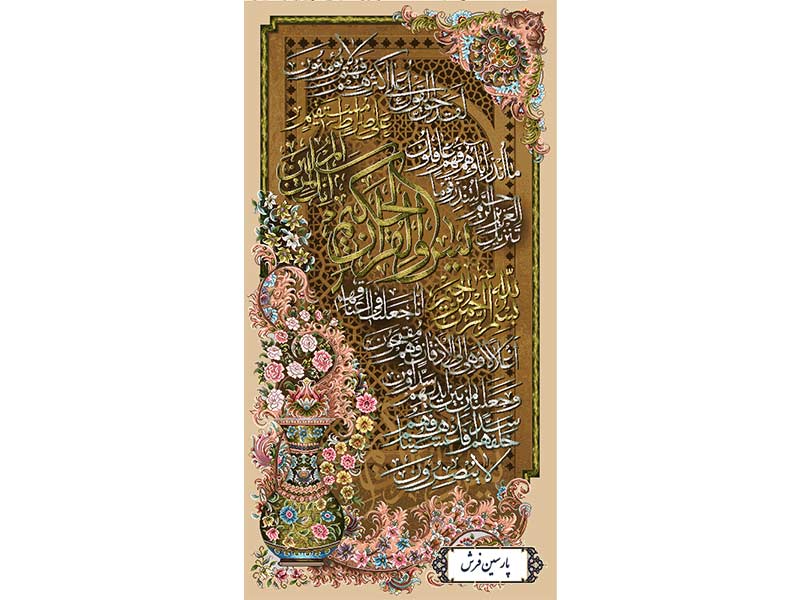 بسم الله الرحمن الرحيم
يس والقرآن الحكيم
إنك لمن المرسلين
على صراط مستقيم
تنزيل
العزيز الرحيم لتنذر قوما
ما أنذر آباؤهم فهم غافلون
لقد حق القول على أكثرهم
فهم لا يؤمنون
إنا جعلنا في أعناقهم
أغلالا فهي إلى الأذقان
فهم مقمحون
وجعلنا من بين أيديهم
سدا ومن
خلفهم سدا فأغشيناهم فهم
لا يبصرون
پارسین فرش